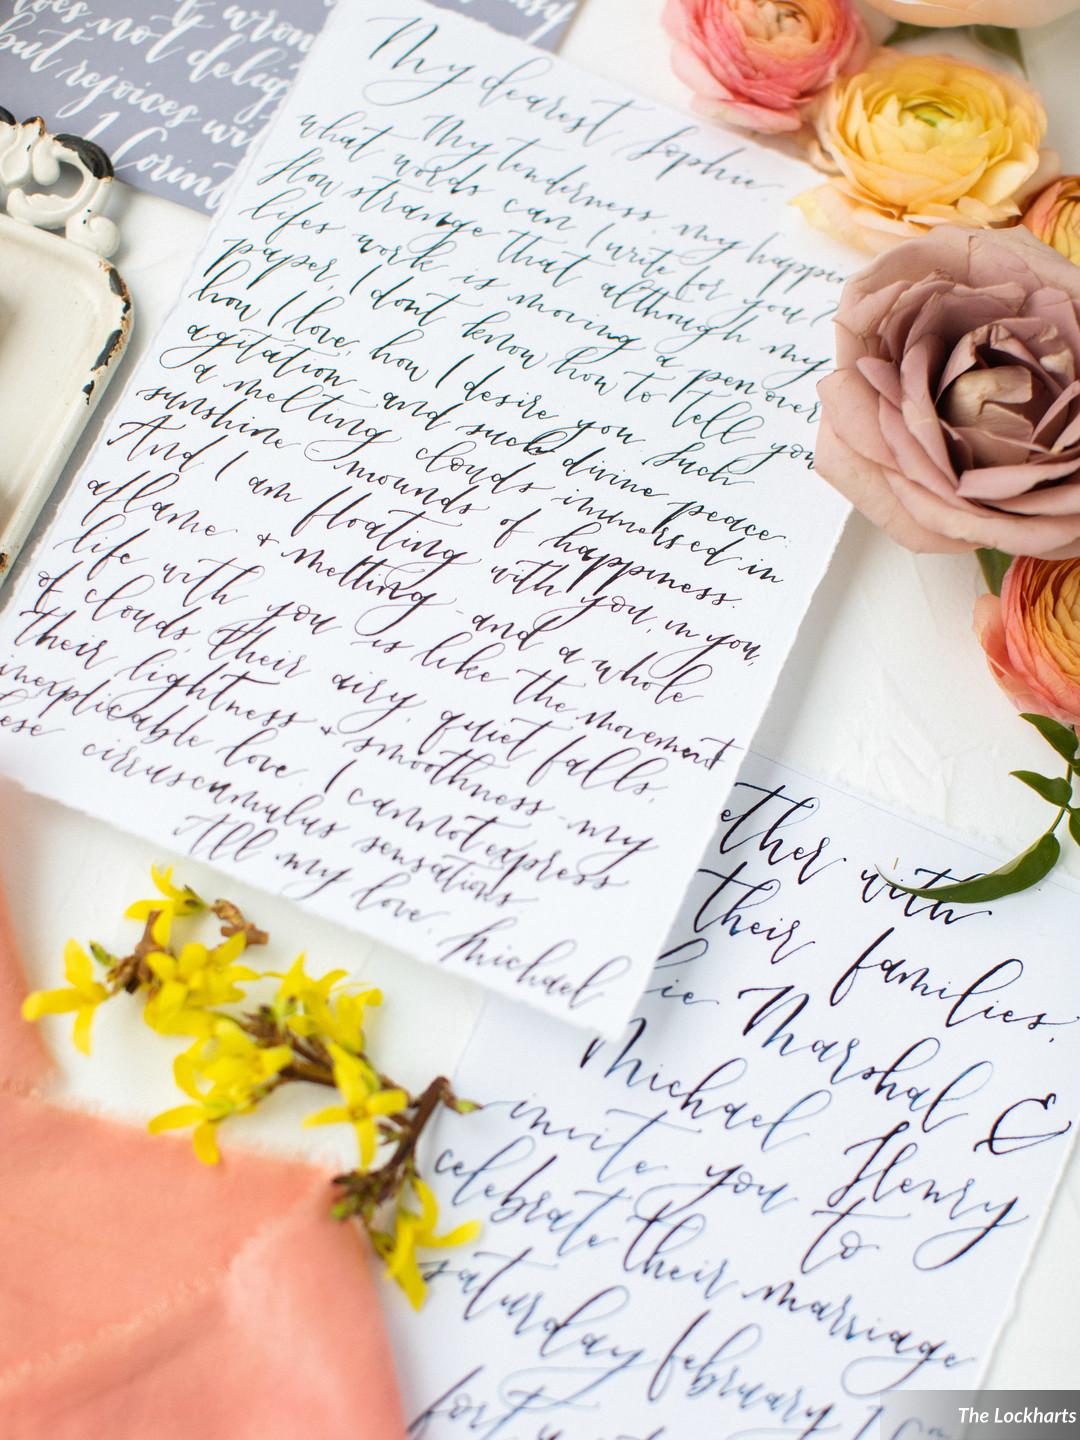 wrong
does not delight
but rejoices wi
1 Corint
My dearest Sophie
My tenderness, my happin
what words can I write for you?
How strange that although my
lifes work is moving a pen over
paper, I dont know how to tell you
how I love, how I desire you. Such
agitation - and such divine peace:
a melting clouds immersed in
sunshine - mounds of happiness.
And I am floating with you, in you,
aflame & melting - and a whole
life with you is like the movement
of clouds, their airy, quiet falls,
their lightness & smoothness - my
inexplicable love. I cannot express
ese cirruscumulus sensations.
All my love, Michael
ether with
their families,
ie Marshal &
Michael Henry
invite you to
celebrate their marriage
saturday february
The Lockharts